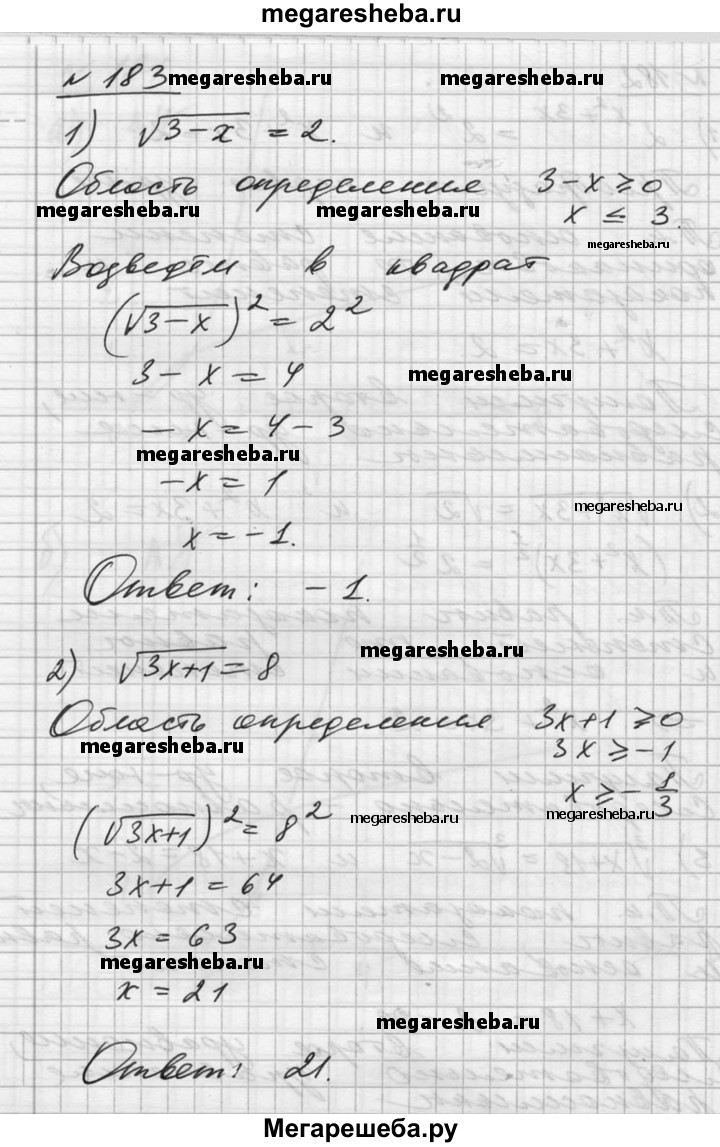 megaresheba.ru
№ 183 megaresheba.ru
1) √3-x = 2.
Область определения 3-x ≥ 0
megaresheba.ru megaresheba.ru x ≤ 3.
megaresheba.ru
Возведём в квадрат
(√3-x)² = 2²
3 - x = 4 megaresheba.ru
- x = 4 - 3
megaresheba.ru
-x = 1
megaresheba.ru
x = -1.
Ответ: - 1.
megaresheba.ru
2) √3x+1 = 8
Область определения 3x+1 ≥ 0
megaresheba.ru 3x ≥ -1
x ≥ -1/3
megaresheba.ru megaresheba.ru
(√3x+1)² = 8²
3x+1 = 64 megaresheba.ru
3x = 63
megaresheba.ru
x = 21
megaresheba.ru
Ответ: 21.
Мегарешеба.ру